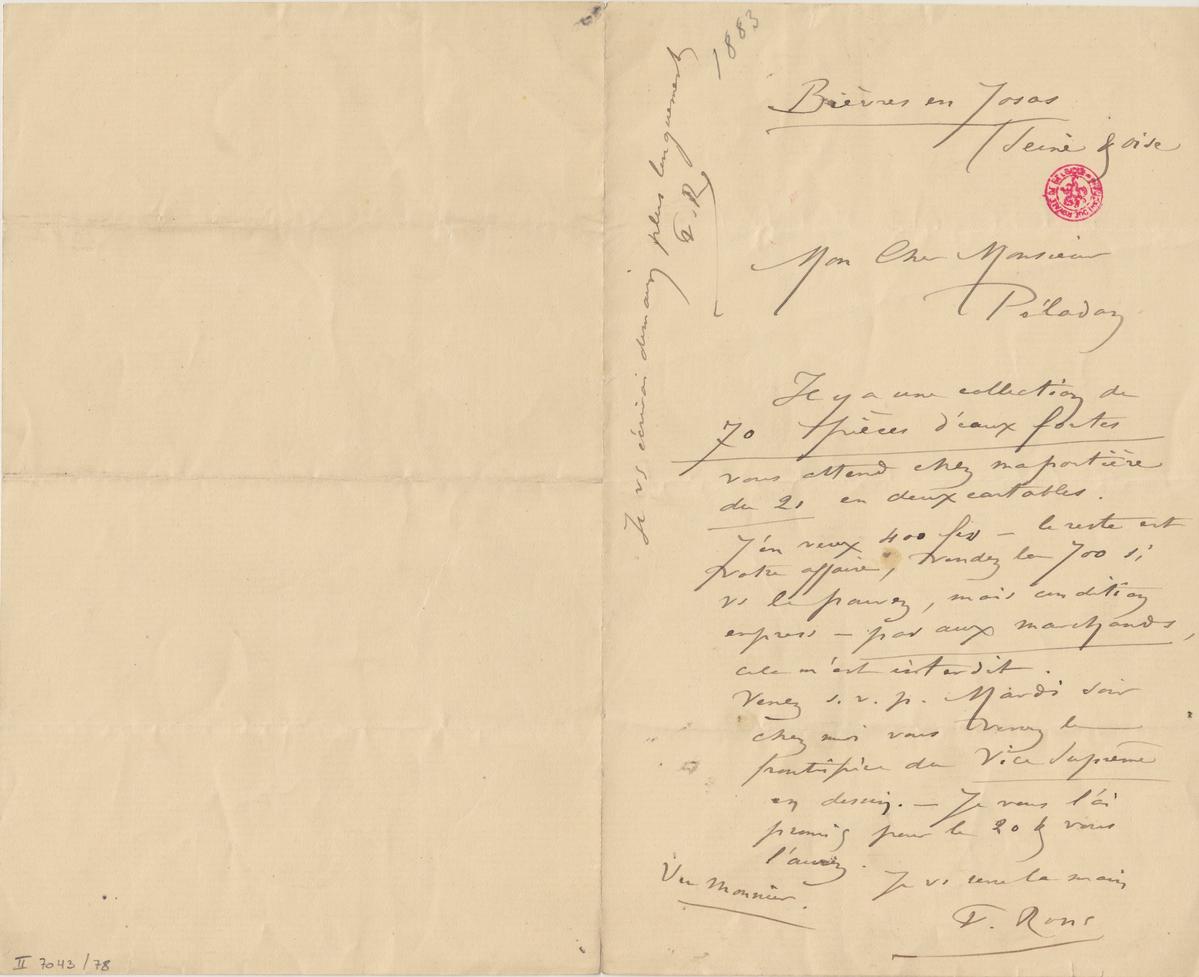 1883
Bièvres en Josas
Seine & oise
Mon Cher Monsieur
Péladan
Il y a une collection de
70 pièces d'eaux fortes
vous attend chez ma portière
du 21 en deux cartables.
J'en veux 400 frs – le reste est
votre affaire, vendez les 700 si
vs le pouvez, mais condition
express – pas aux marchands,
cela m'est interdit.
Venez s. v. p. Mardi soir
chez moi vous verrez le
frontispice du Vice Suprême
en dessin. – Je vous l'ai
promis pour le 20 & vous
l'aurez.
Je vs serre la main
F. Rops
Vu Monnier.
Je vs écrirai demain plus longuement
F. R
II 7043 / 78